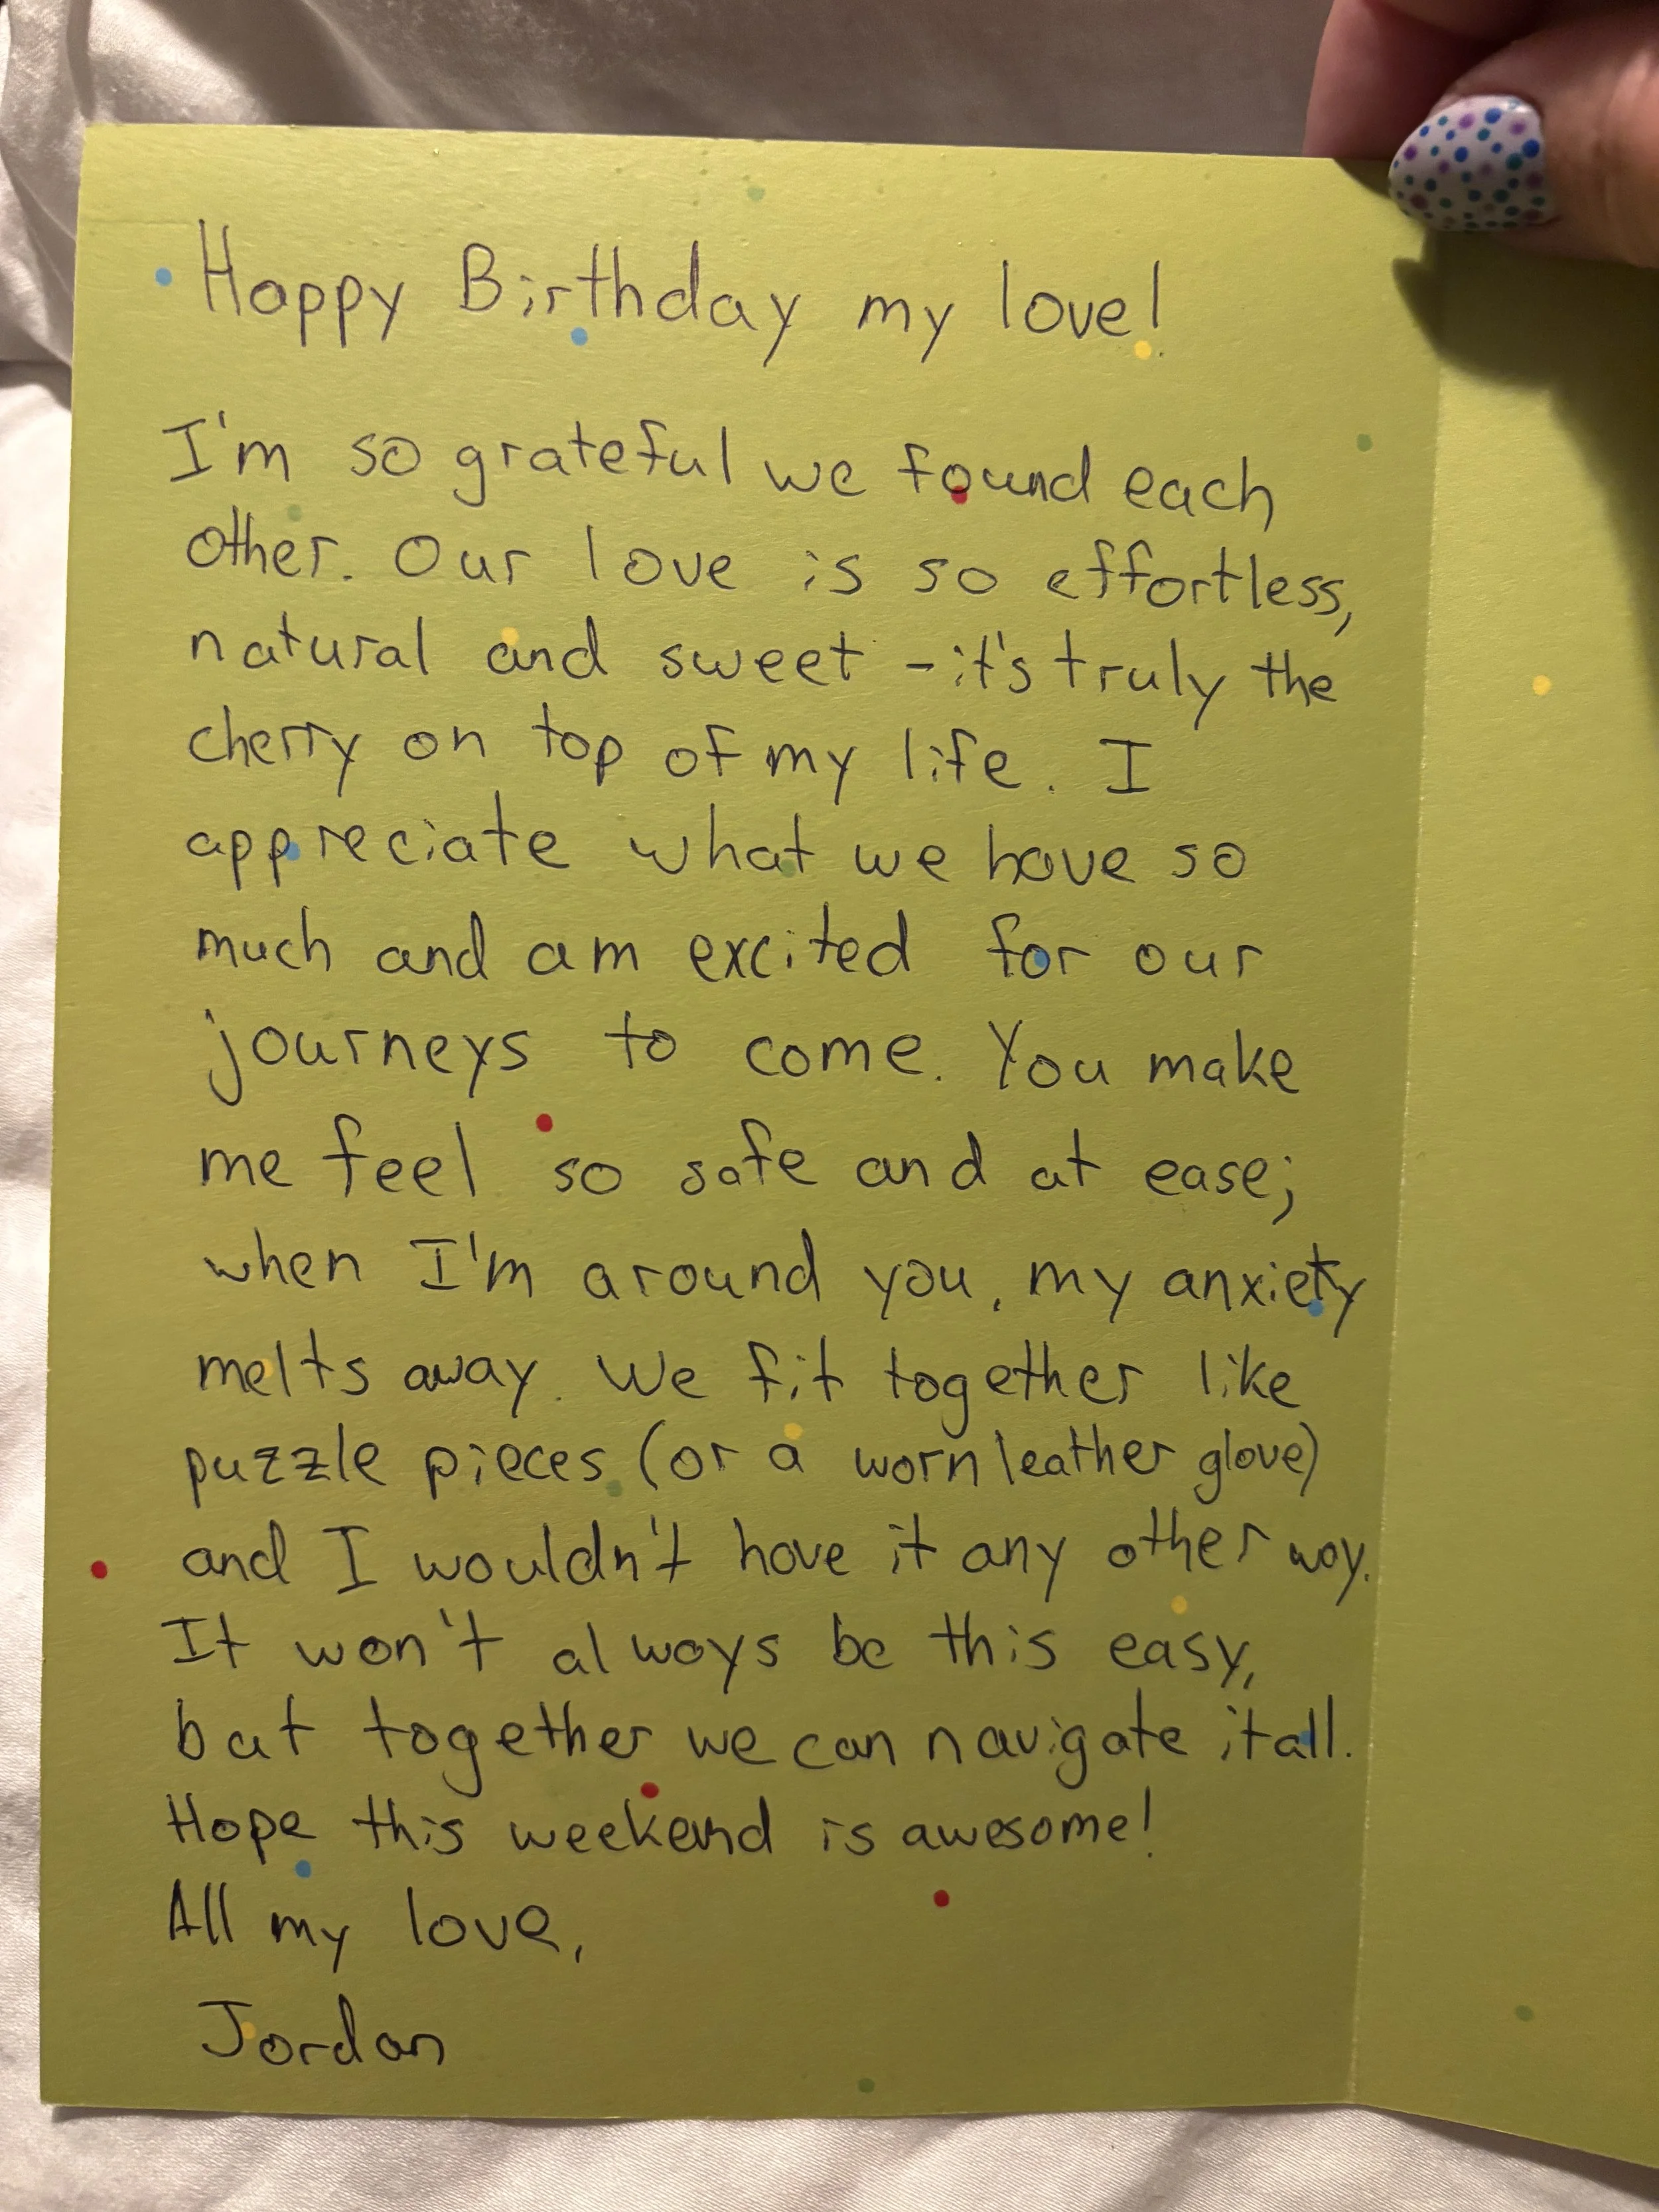 Happy Birthday my love!
I'm so grateful we found each
other. Our love is so effortless,
natural and sweet - it's truly the
cherry on top of my life. I
appreciate what we have so
much and am excited for our
journeys to come. You make
me feel so safe and at ease;
when I'm around you, my anxiety
melts away. We fit together like
puzzle pieces (or a worn leather glove)
and I wouldn't have it any other way.
It won't always be this easy,
but together we can navigate it all.
Hope this weekend is awesome!
All my love,
Jordan